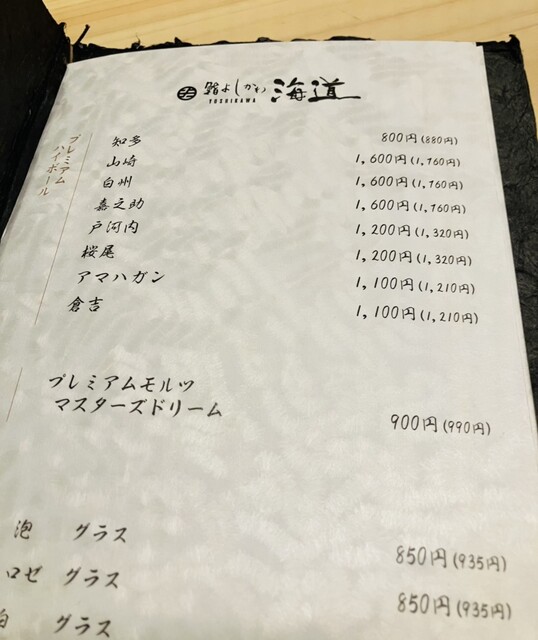 鮨よしかわ 海道
YOSHIKAWA
プレミアム
ハイボール
知多 800円(880円)
山崎 1,600円(1,760円)
白州 1,600円(1,760円)
嘉之助 1,600円(1,760円)
戸河内 1,200円(1,320円)
桜尾 1,200円(1,320円)
アマハガン 1,100円(1,210円)
倉吉 1,100円(1,210円)
プレミアムモルツ
マスターズドリーム 900円(990円)
泡 グラス 850円(935円)
ロゼ グラス 850円(935円)
白 グラス